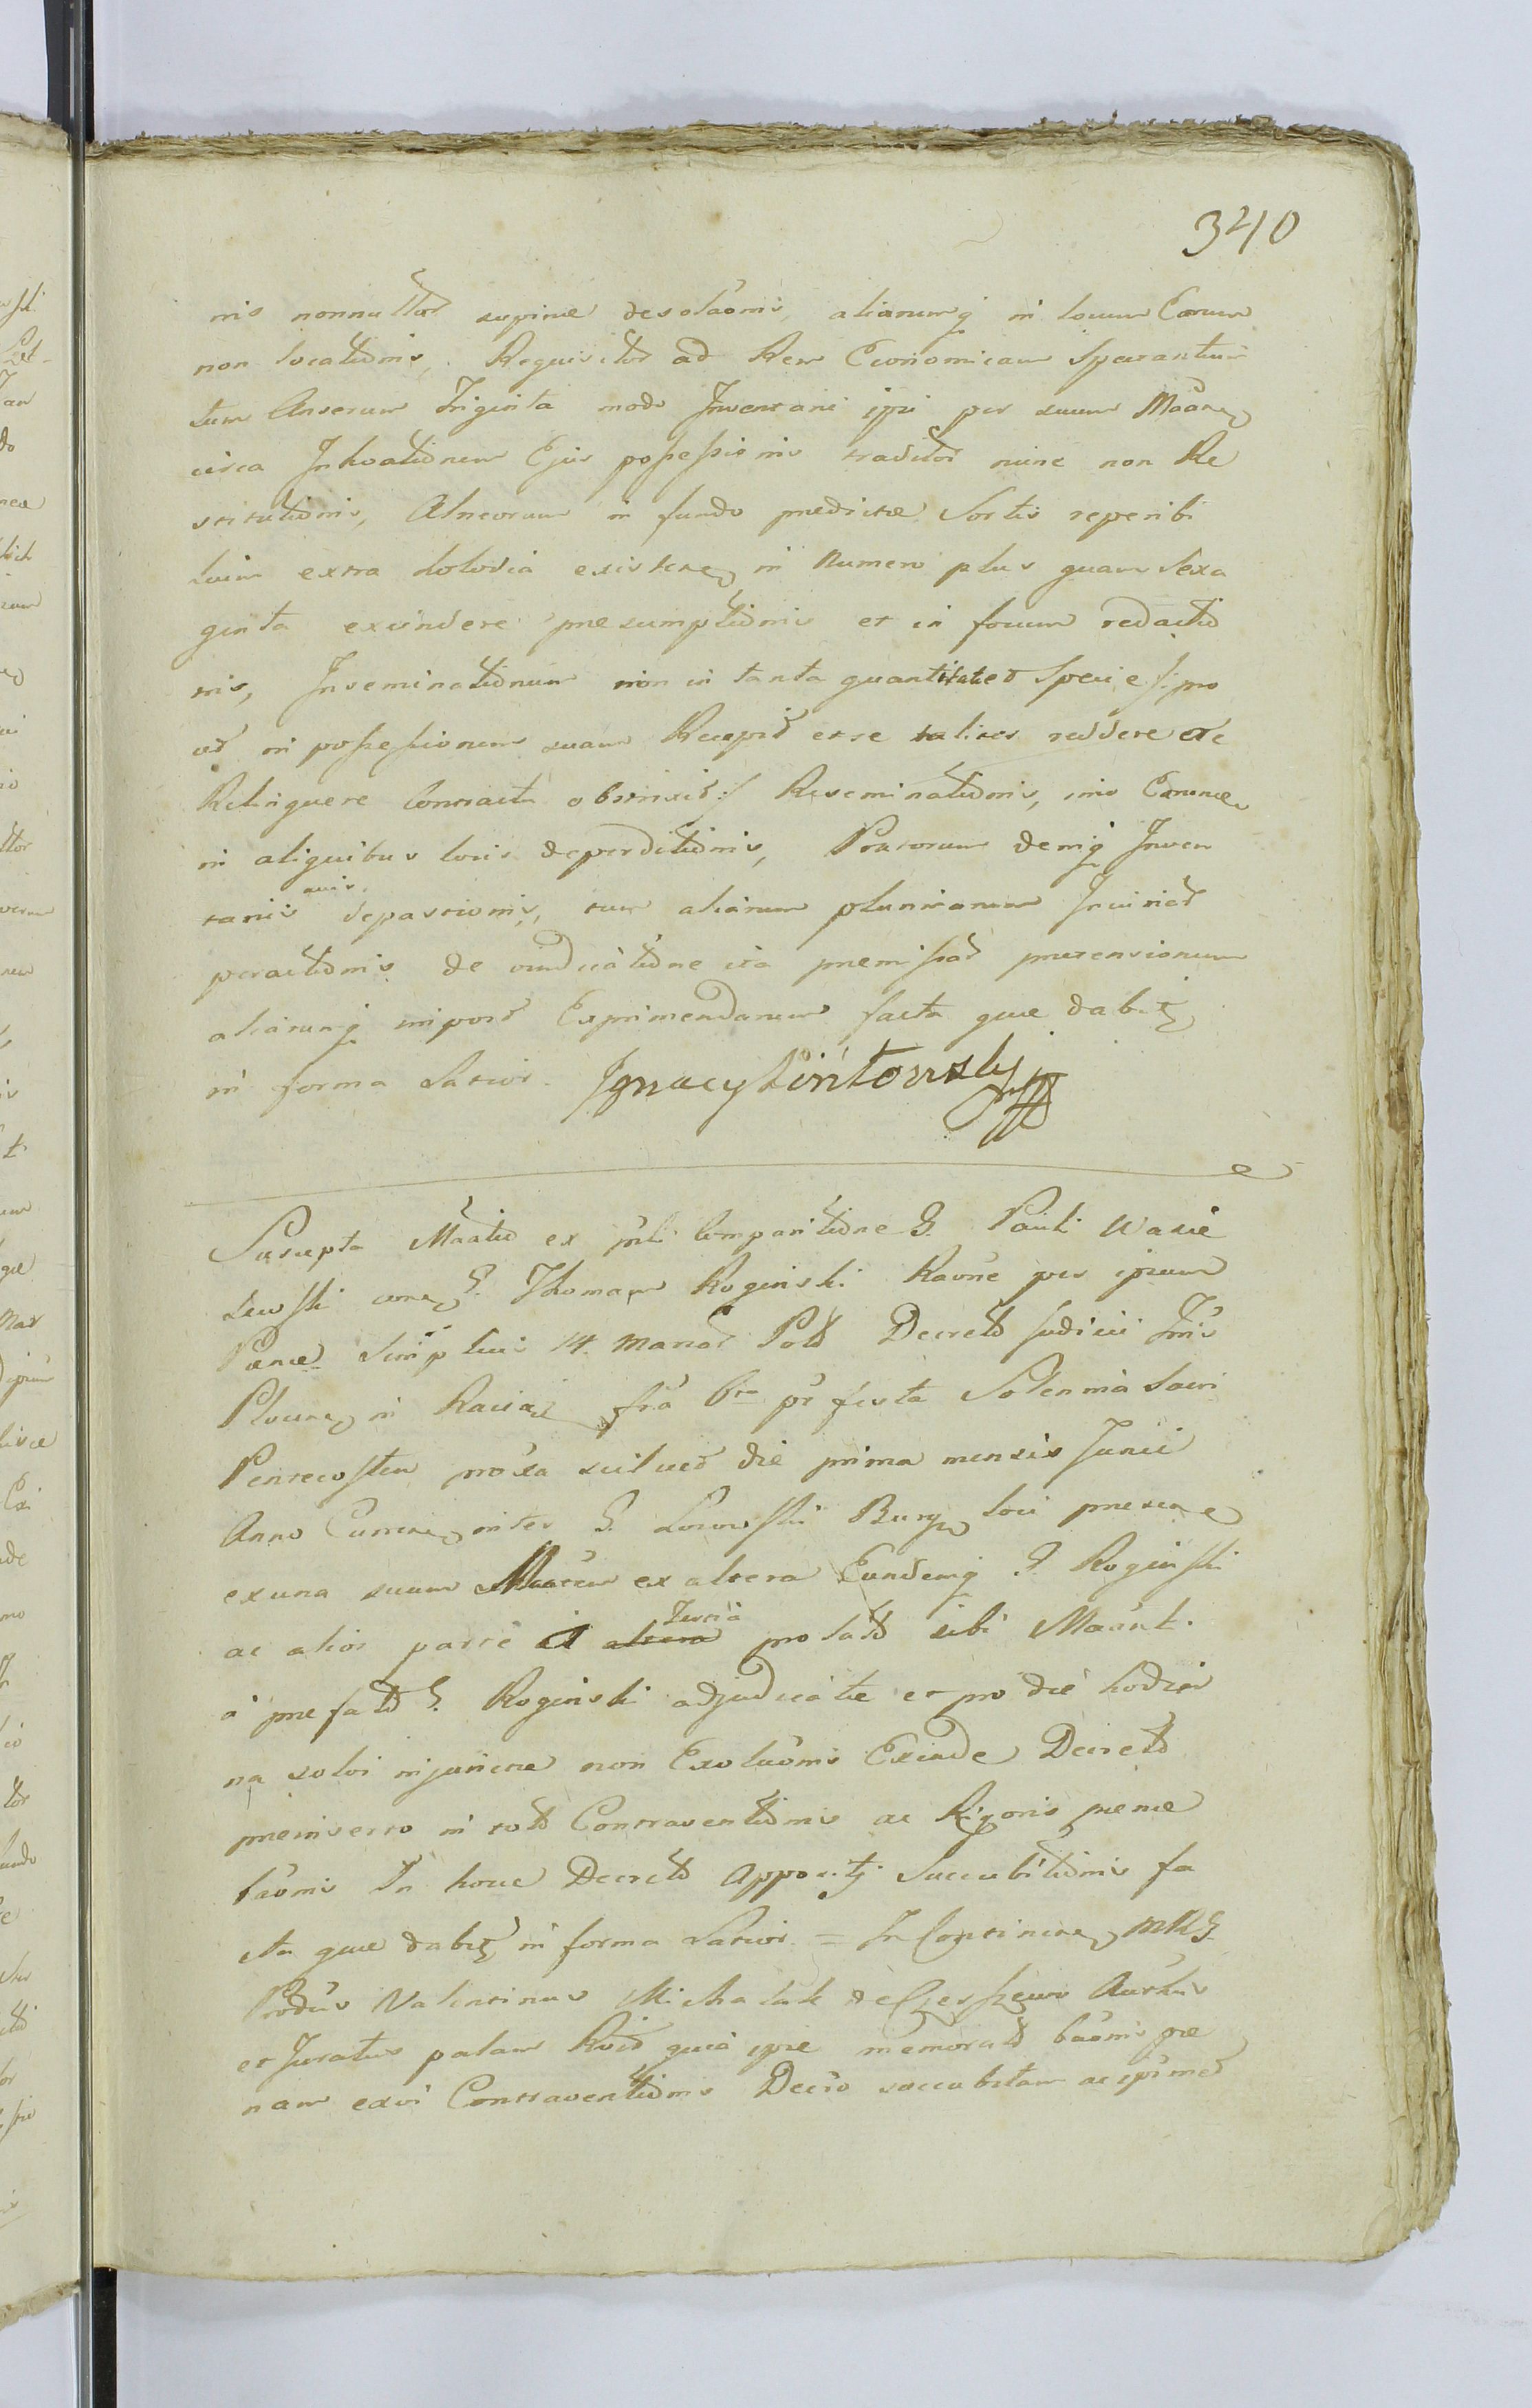 340
nis nonnullor supinæ desolaonis, aliarumq in locum Earum
non locationis, Requisitor ad Rem Economicam Spectantium
tum Anserum Triginta modo Inventarii ipsi per suum
circa Inhoationem Ejus possessionis traditor nunc non Re
stitutionis, Alneorum in fundo prædictæ Sortis reperibi
lium extra existen in numero plus quam sexa
ginta excindere præsumptionis et in focum redactio
nis, Inseminationum non in tanta quantitate Specie /: pro
ut in possessionem suam Recepit et se taliter reddere et
Relinquere Contractu obstrinxit :/ Reseminationis, imo Earum
in aliquibus locis deperditionis, Pratorum deniq Inven
tarii suis depastionis, tum aliarum plurimarum Injuriar
peractionis de vindicatione ita præmissar prætensionum
aliarumq impost Exprimendarum facta quæ dabit
in forma Latior. Ignacy
Suscepta Mnatio ex pnli Comparitione G. Pauli Wasie
lewski con G. Thomam Roginski Raone per ipsum
Pænæ Simplicis 14 Marcar Polo Decreto Judicii Tris
Plocen in Raciąż fra 6ta pt festa Solennia Sacri
Pentecosten proxa scilicet die prima mensis Junii
Anno Curren inter G. Burg loci præsen
ex una suum ex altera Eundemq G. Roginski
ac alios parte a altera Tertia pro lato sibi
a præfato G. Roginski adjudicatæ et pro die hodier
na solvi injunctæ non Exolutionis Exinde Decreto
præinserto in toto Contraventionis ac Rigoris pænæ
baonis In hocce Decreto Appositi Succubitionis fa
cta quæ dabit in forma Latior = In Continen MRG
Produs Valentinus Michalak de
et Juratus palam Rcit quia ipse memorato baonis pæ
nam exvi Contraventionis Decro succubitam